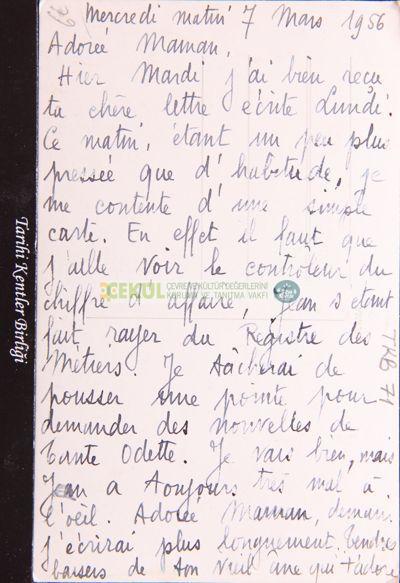 Mercredi matin 7 Mars 1956
Adorée Maman,
Hier Mardi j'ai bien reçu
ta chère lettre écrite Lundi.
Ce matin, étant un peu plus
pressée que d'habitude, je
me contente d'une simple
carte. En effet il faut que
j'aille voir le controleur du
chiffre d'affaire, Jean s'étant
fait rayer du Registre des
Métiers. Je tâcherai de
pousser une pointe pour
demander des nouvelles de
tante Odette. Je vais bien, mais
Jean a toujours très mal à
l'oeil. Adorée Maman, demain
j'écrirai plus longuement. Tendres
baisers de ton vieil âne qui t'adore
ÇEKÜL
ÇEVRE VE KÜLTÜR DEĞERLERİNİ
KORUMA VE TANITMA VAKFI
Tarihi Kentler Birliği
TKB 71